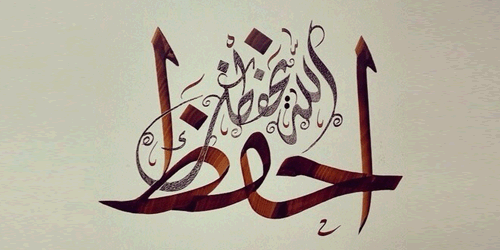 احفظ الله يحفظك